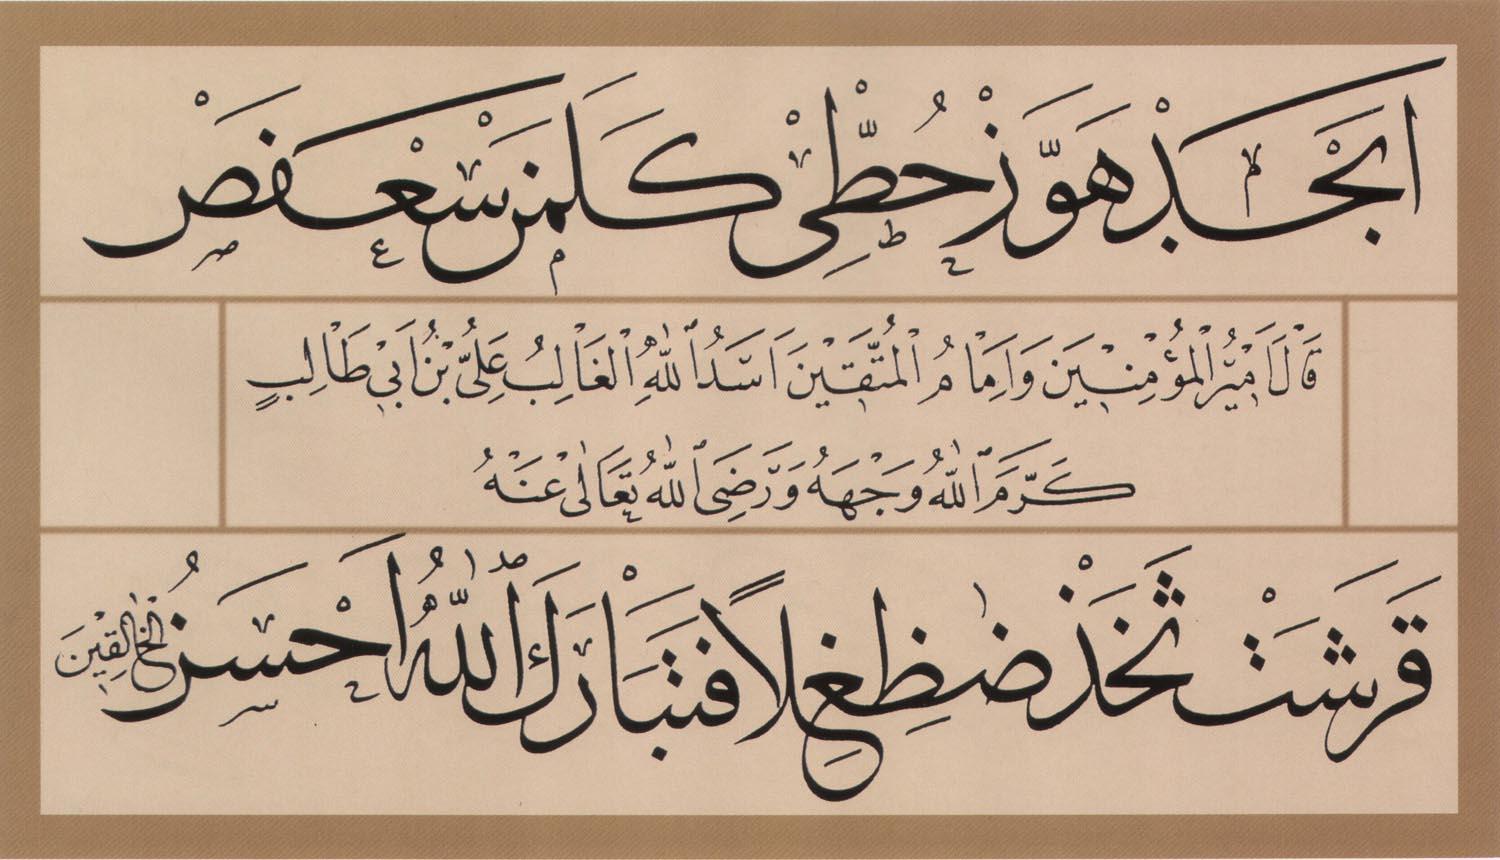 اَبْجَدْ هَوَّزْ حُطِّيْ كَلَمَنْ سَعْفَصْ
قَالَ اَمِيْرُ الْمُؤْمِنِيْنَ وَاِمَامُ الْمُتَّقِيْنَ اَسَدُ اللّٰهِ الْغَالِبُ عَلِيُّ بْنُ اَبِي طَالِبٍ
كَرَّمَ اللّٰهُ وَجْهَهُ وَرَضِيَ اللّٰهُ تَعَالٰى عَنْهُ
قَرَشَتْ ثَخَذْ ضَظِغْلًا فَتَبَارَكَ اللّٰهُ اَحْسَنُ الْخَالِقِيْنَ